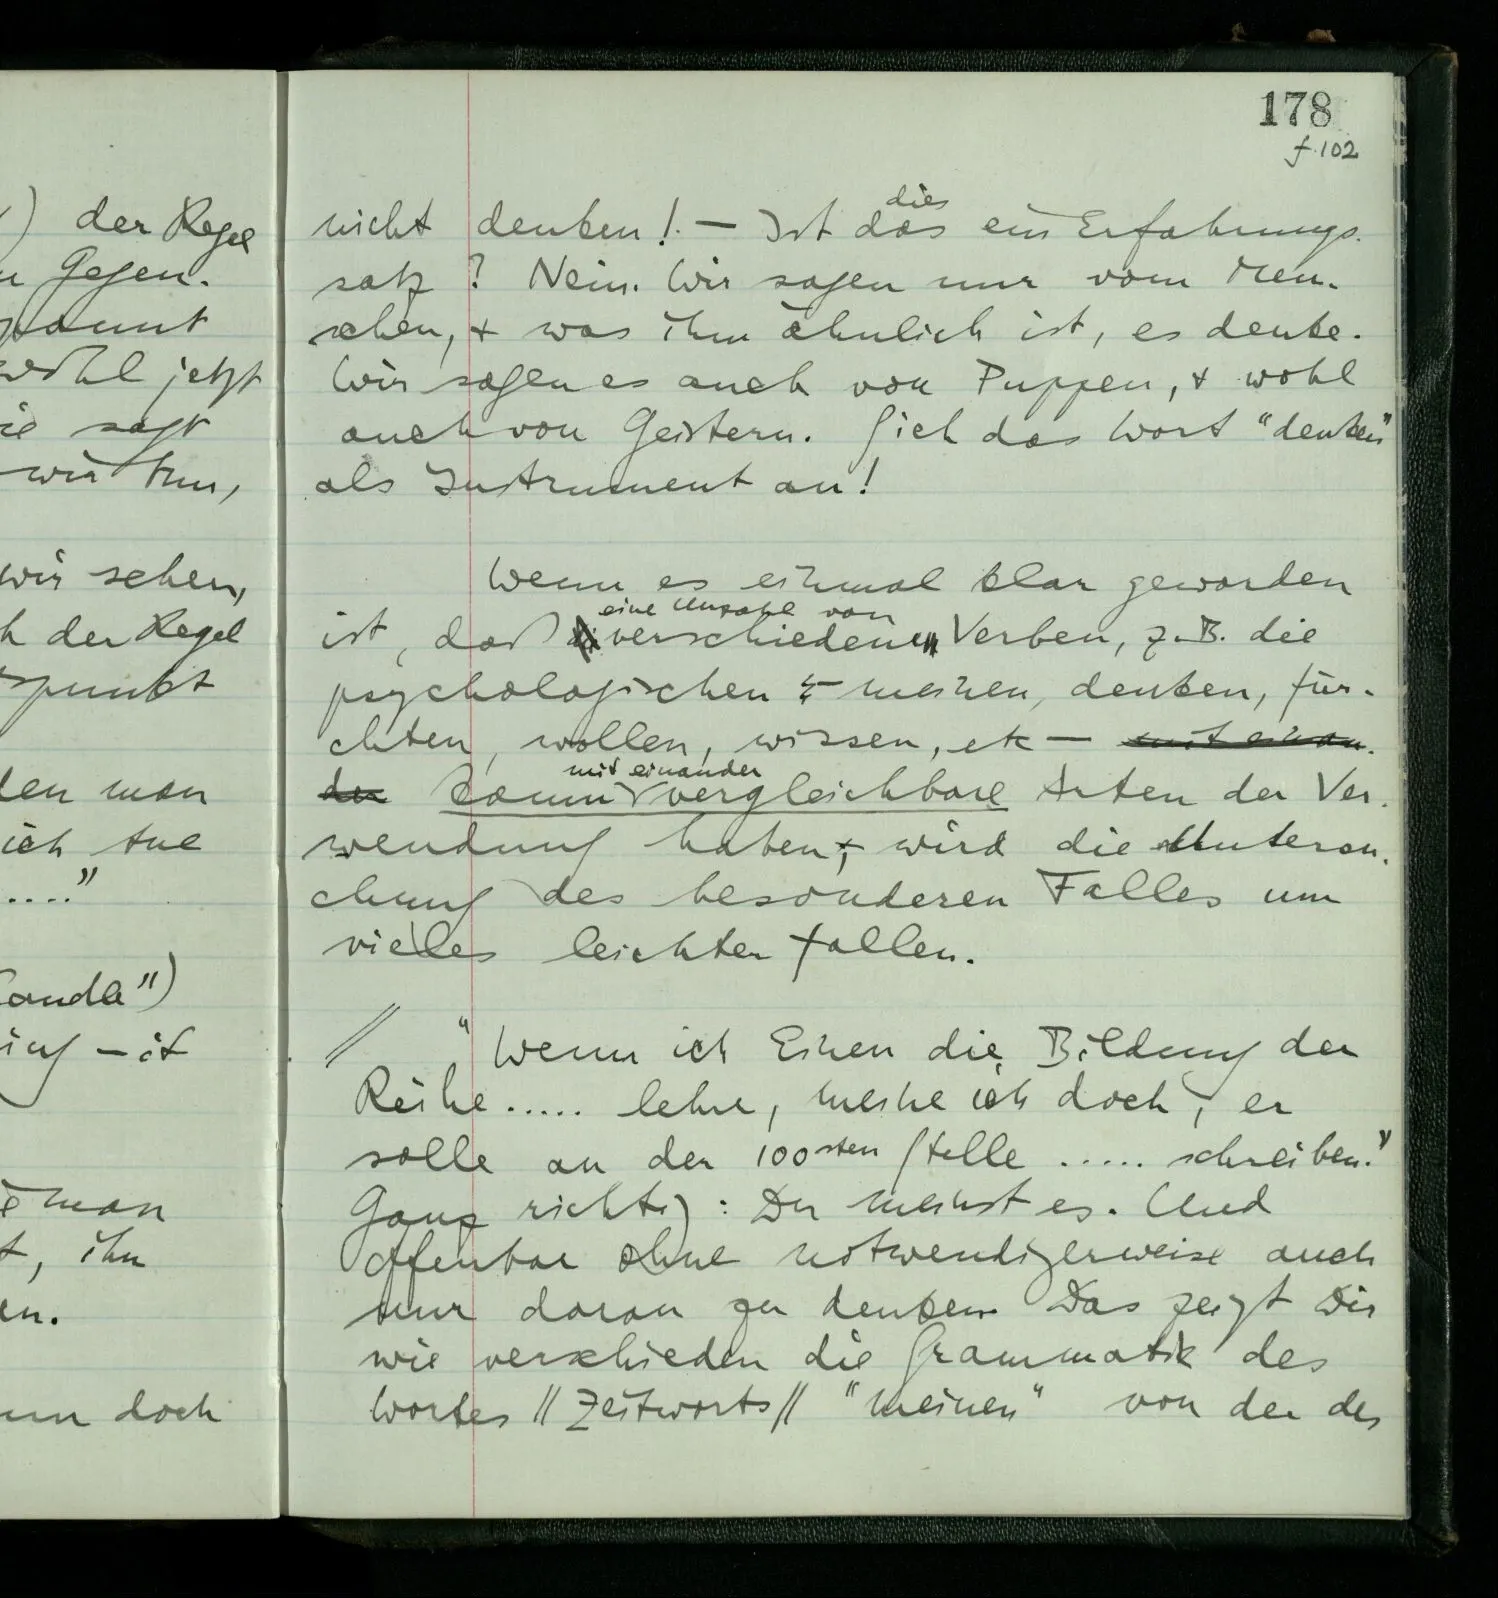 ) der Regel
n Gegen-
spannt
wohl jetzt
ie sagt
wir tun,
wir sehen,
h der Regel
spunkt
den man
ich tue
...."
Landla")
ing – it
e man
t, ihn
en.
nn doch
178
f. 102
nicht denken!. – Ist das dies ein Erfahrungs-
satz? Nein. Wir sagen nur vom Men-
schen, & was ihm ähnlich ist, es denke.
Wir sagen es auch von Puppen, & wohl
auch von Geistern. Sieh das Wort "denken"
als Instrument an!
Wenn es einmal klar geworden
eine Unzahl von
ist, daß verschiedener Verben, z.B. die
psychologischen – meinen, denken, für-
chten, wollen, wissen, etc – mit einan-
mit einander
der kaum vergleichbare Arten der Ver-
wendung haben, wird die Untersu-
chung des besonderen Falles um
vieles leichter fallen.
// "Wenn ich Einen die Bildung der
Reihe ..... lehre, meine ich doch, er
solle an der 100sten Stelle ..... schreiben."
Ganz richtig: Du meinst es. Und
offenbar ohne notwendigerweise auch
nur daran zu denken. Das zeigt Dir
wie verschieden die Grammatik des
Wortes // Zeitworts // "meinen" von der des